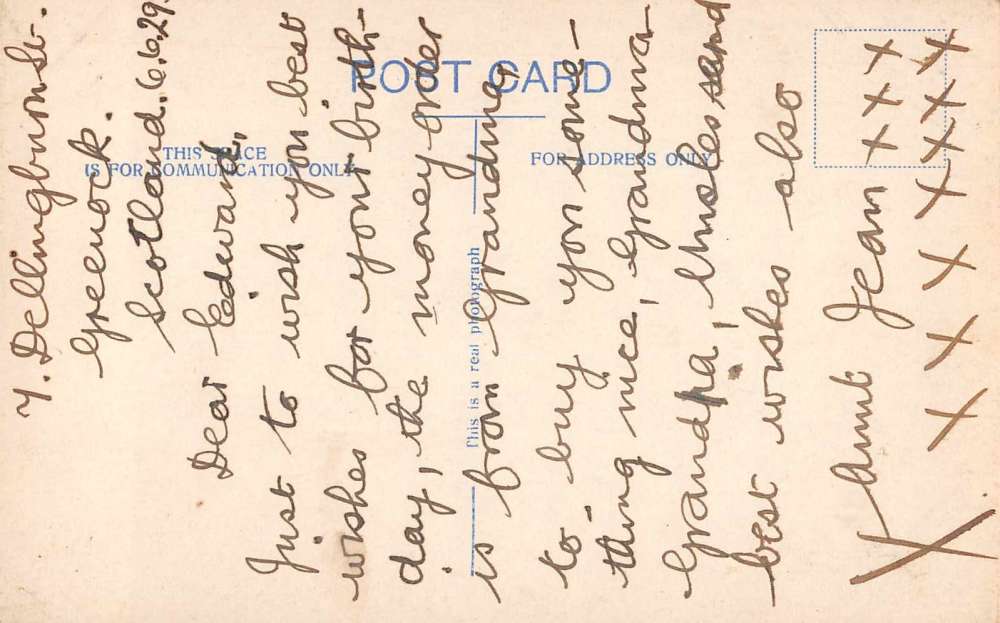 POST CARD
THIS SPACE
IS FOR COMMUNICATION ONLY
FOR ADDRESS ONLY
This is a real photograph
7. Dellingburn St.
Greenock.
Scotland. 6.6.29.
Dear Edward,
Just to wish you best
wishes for your birth-
day, the money order
is from Grandma
to buy you some-
thing nice, Grandma
Grandpa, Uncles send
best wishes also
Aunt Jean
x x x
x x x x x x x
X